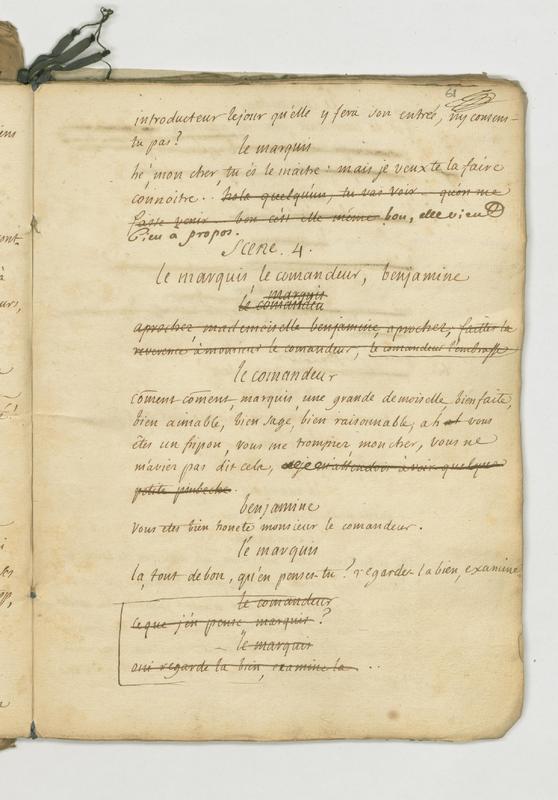 61
introducteur le jour qu'elle y fera son entrée, n'y consens-
tu pas?
le marquis
hé mon cher, tu és le maitre: mais je veux te la faire
connoitre.. hola quelqu'un, tu vas voir.. qu'on me
fasse venir.. bon c'est elle même bon, elle vien
bien a propos.
Scene. 4.
le marquis, le comandeur, benjamine
marquis
le comandeu
aprochez mademoiselle benjamine, aprochez, faitte la
reverence à monsieur le comandeur, le comandeur l'embrasse
le comandeur
coment coment, marquis, une grande demoiselle bienfaite,
bien aimable, bien sage, bien raisonnable, ah vous
étes un fripon, vous me trompiez mon cher, vous ne
m'aviez pas dit cela, je m'attendois à voir quelque
petite pimbeche.
benjamine
vous etes bien honete monsieur le comandeur.
le marquis
la, tout de bon, qu'en penses-tu? regarde-la bien, examine
le comandeur
ce que j'en pense marquis?
le marquis
oui regarde la bien, examine la...